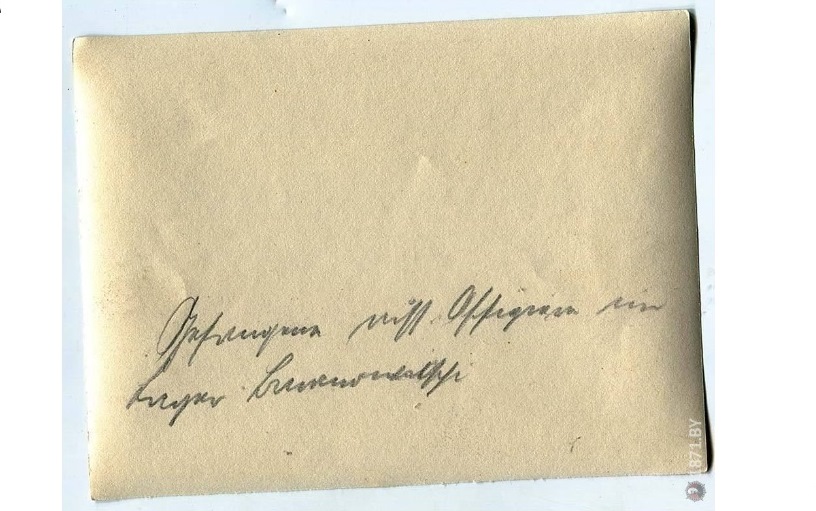 Gefangene russ. Offiziere im
Lager Baranowitschi
1871.BY